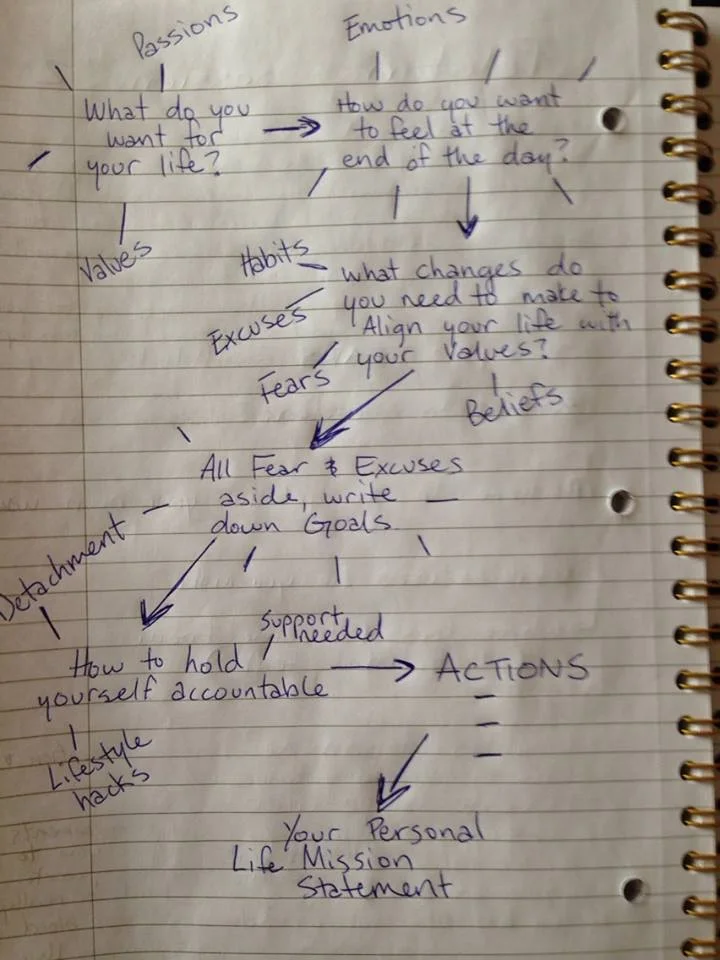 Passions
Emotions
What do you
want for
your life?
How do you want
to feel at the
end of the day?
Values
Habits
Excuses
Fears
What changes do
you need to make to
Align your life with
your Values?
Beliefs
All Fear & Excuses
aside, write
down Goals
Detachment
Support
needed
How to hold
yourself accountable
ACTIONS
Lifestyle
hacks
Your Personal
Life Mission
Statement